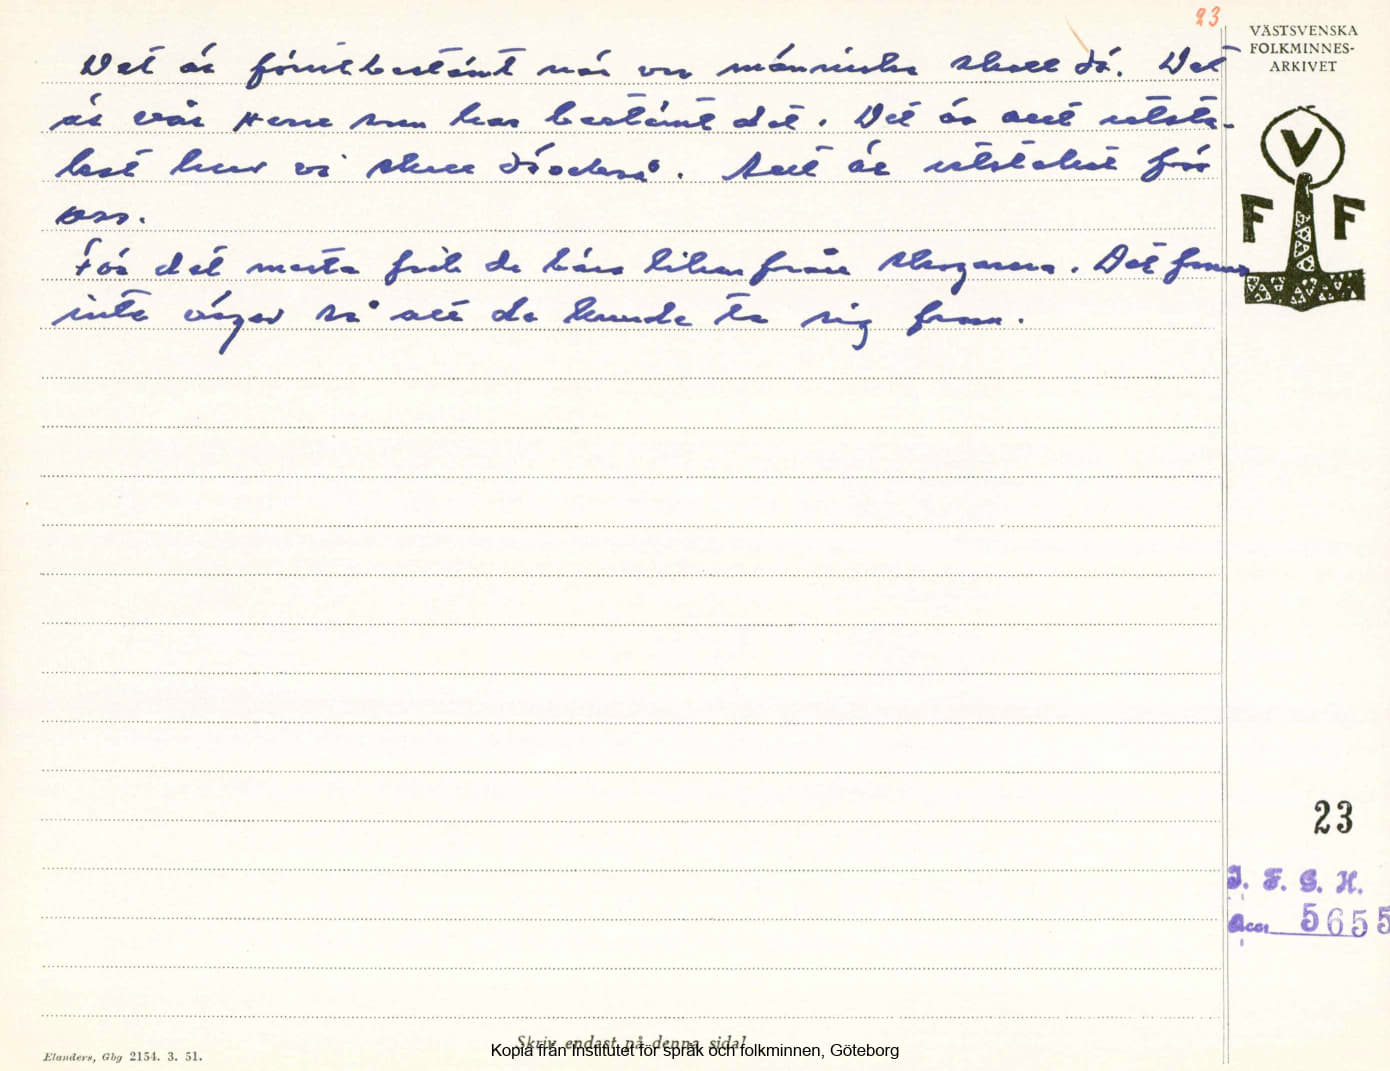 23
VÄSTSVENSKA
FOLKMINNES-
ARKIVET
Det är förutbestämt när en människa skall dö. Det
är vår Herre som har bestämt det. Det är allt utsta-
kat hur vi skall dö också. Allt är utstakat för
oss.
För det mesta fick de bära liken från skogarna. Det fanns
inte vägar så att de kunde ta sig fram.
V
F F
23
I. F. G. H.
Acc. 5655
Skriv endast på denna sida!
Elanders, Gbg 2154. 3. 51.
Kopia från Institutet för språk och folkminnen, Göteborg